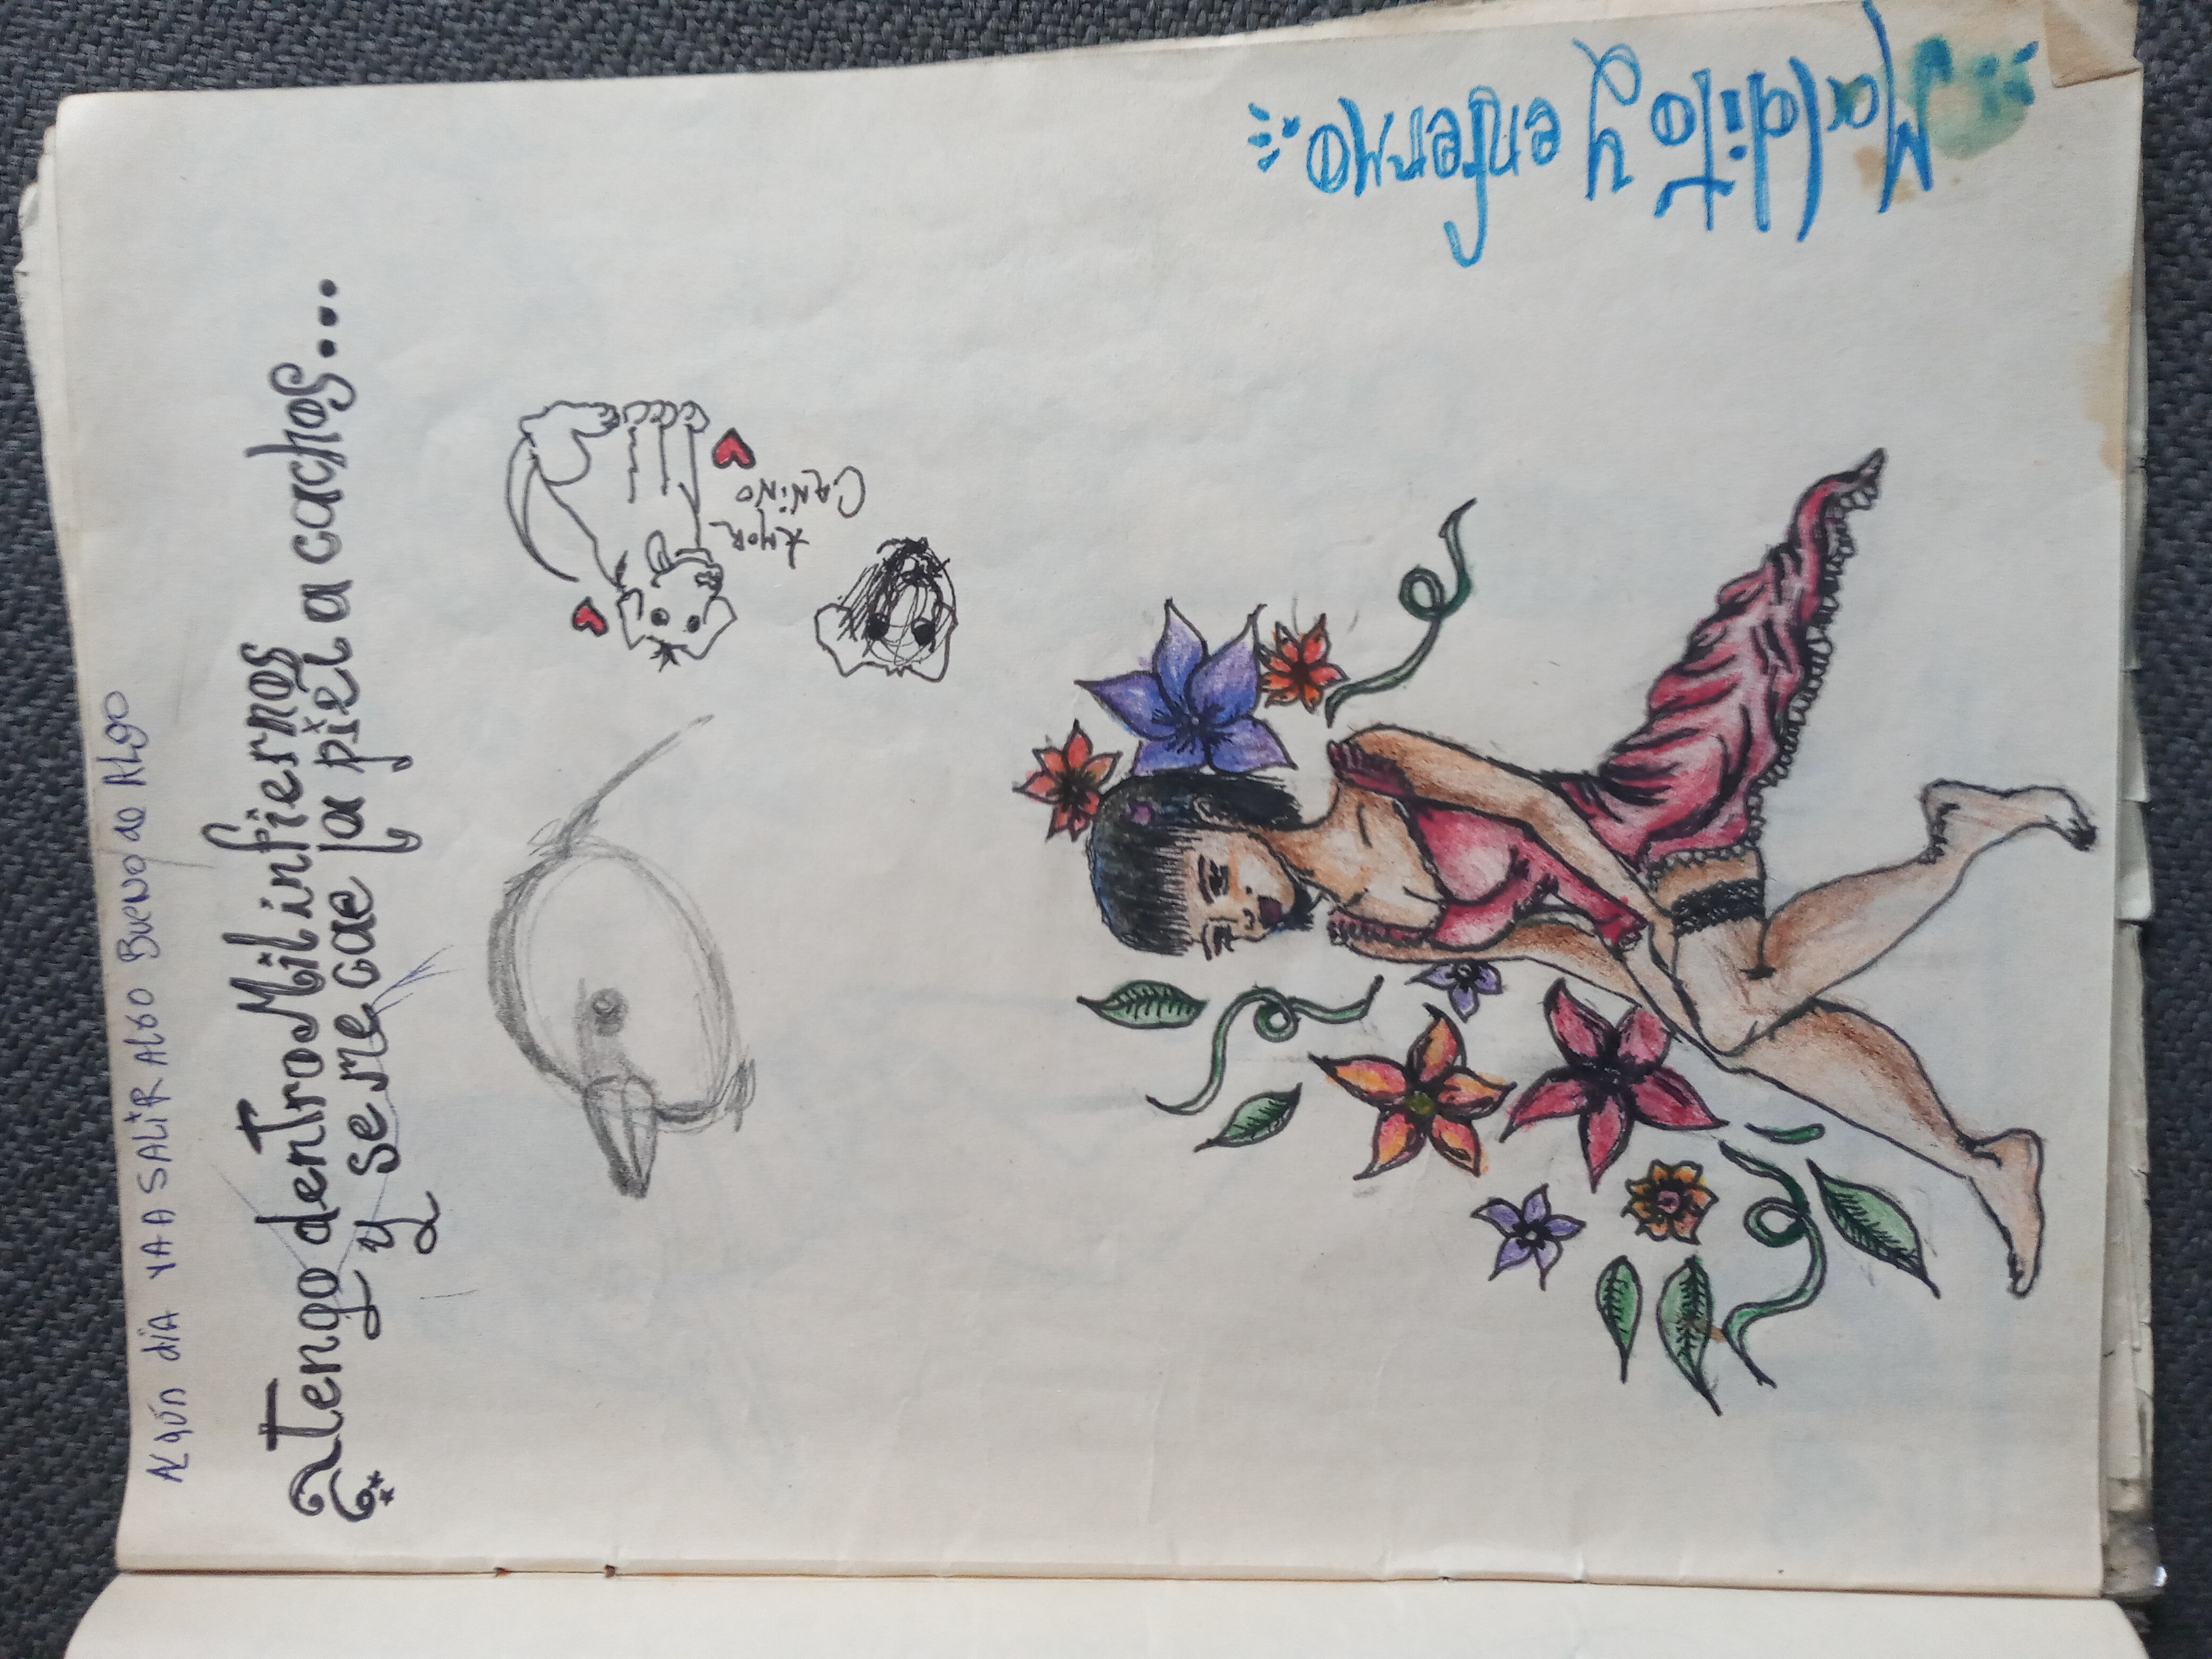 Algún día VA A SALiR Algo Bueno de Algo
tengo dentro Mil infiernos
y se me cae la piel a cachos...
AMOR
CANiNO
Maldito y enfermo.